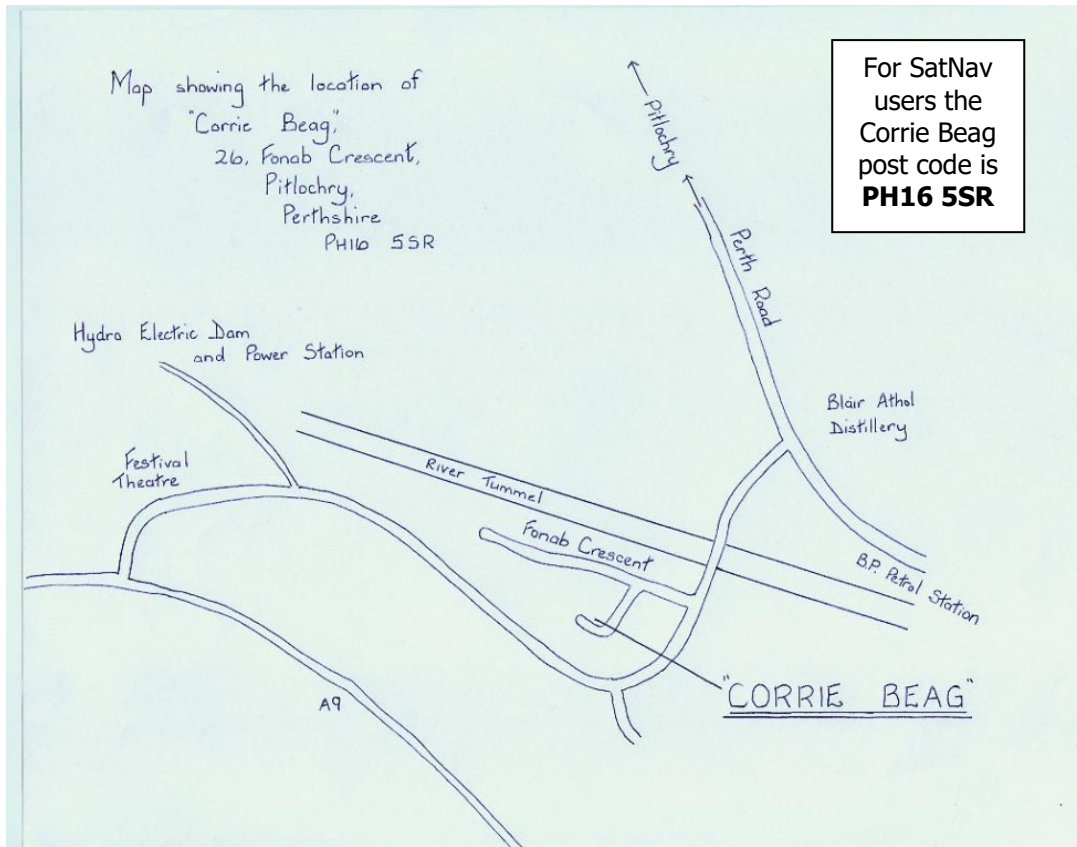 Map showing the location of
"Corrie Beag",
26, Fonab Crescent,
Pitlochry,
Perthshire
PH16 5SR
For SatNav
users the
Corrie Beag
post code is
PH16 5SR
Pitlochry
Perth Road
Hydro Electric Dam
and Power Station
Blair Athol
Distillery
Festival
Theatre
River Tummel
Fonab Crescent
B.P. Petrol Station
"CORRIE BEAG"
A9